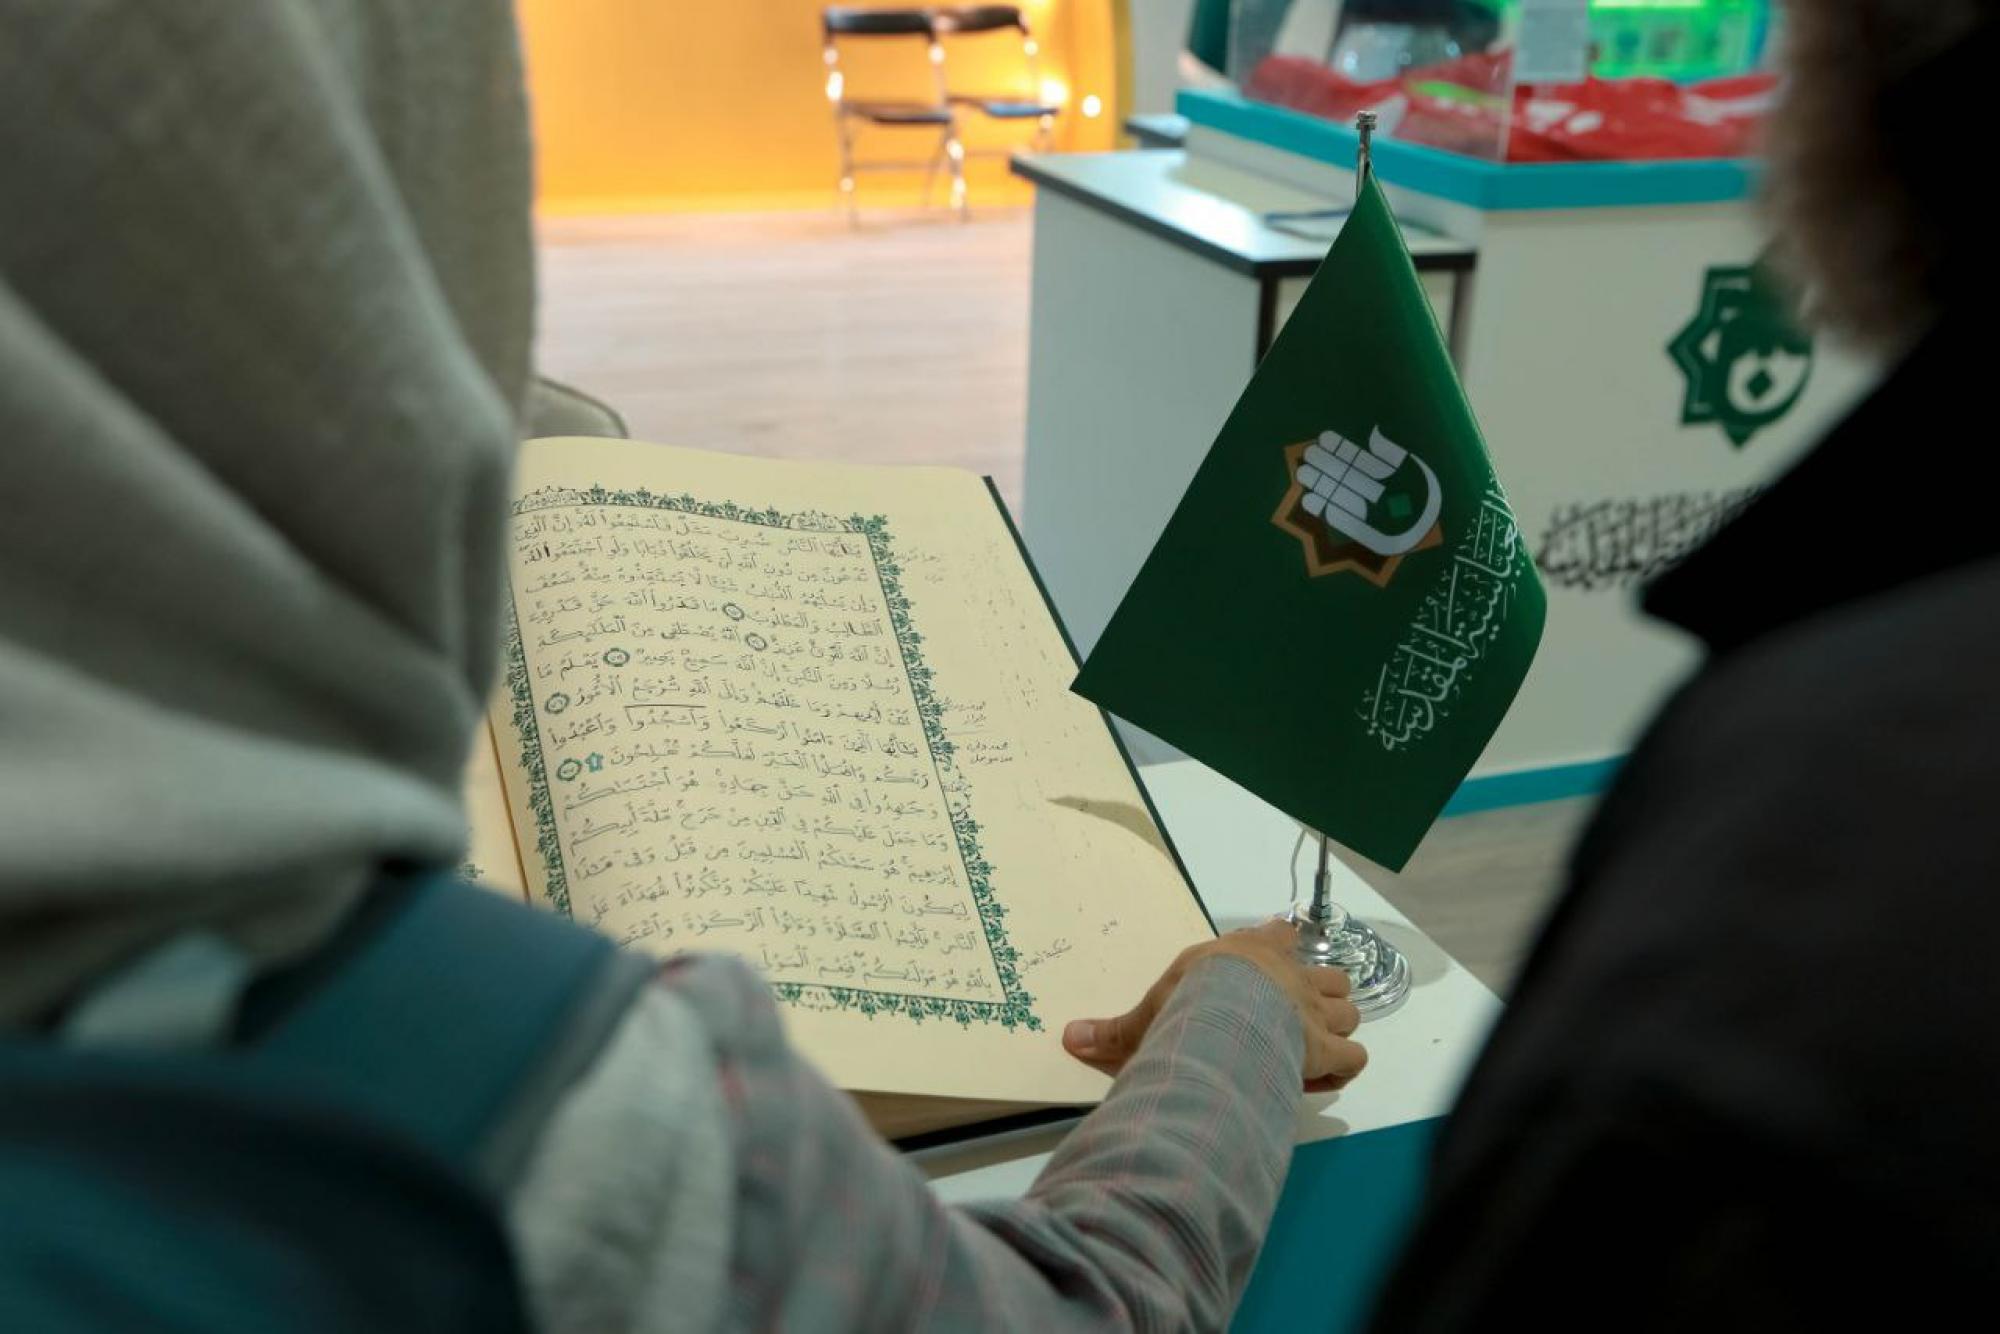 يَٰٓأَيُّهَا ٱلنَّاسُ ضُرِبَ مَثَلٌ فَٱسْتَمِعُوا۟ لَهُۥٓ إِنَّ ٱلَّذِينَ
تَدْعُونَ مِن دُونِ ٱللَّهِ لَن يَخْلُقُوا۟ ذُبَابًا وَلَوِ ٱجْتَمَعُوا۟ لَهُۥ
وَإِن يَسْلُبْهُمُ ٱلذُّبَابُ شَيْـًٔا لَّا يَسْتَنقِذُوهُ مِنْهُ ضَعُفَ
ٱلطَّالِبُ وَٱلْمَطْلُوبُ مَا قَدَرُوا۟ ٱللَّهَ حَقَّ قَدْرِهِۦٓ
إِنَّ ٱللَّهَ لَقَوِىٌّ عَزِيزٌ ٱللَّهُ يَصْطَفِى مِنَ ٱلْمَلَٰٓئِكَةِ
رُسُلًا وَمِنَ ٱلنَّاسِ إِنَّ ٱللَّهَ سَمِيعٌ بَصِيرٌ يَعْلَمُ مَا
بَيْنَ أَيْدِيهِمْ وَمَا خَلْفَهُمْ وَإِلَى ٱللَّهِ تُرْجَعُ ٱلْأُمُورُ
يَٰٓأَيُّهَا ٱلَّذِينَ ءَامَنُوا۟ ٱرْكَعُوا۟ وَٱسْجُدُوا۟ وَٱعْبُدُوا۟
رَبَّكُمْ وَٱفْعَلُوا۟ ٱلْخَيْرَ لَعَلَّكُمْ تُفْلِحُونَ
وَجَٰهِدُوا۟ فِى ٱللَّهِ حَقَّ جِهَادِهِۦ هُوَ ٱجْتَبَىٰكُمْ
وَمَا جَعَلَ عَلَيْكُمْ فِى ٱلدِّينِ مِنْ حَرَجٍ مِّلَّةَ أَبِيكُمْ
إِبْرَٰهِيمَ هُوَ سَمَّىٰكُمُ ٱلْمُسْلِمِينَ مِن قَبْلُ وَفِى هَٰذَا
لِيَكُونَ ٱلرَّسُولُ شَهِيدًا عَلَيْكُمْ وَتَكُونُوا۟ شُهَدَآءَ عَلَى
ٱلنَّاسِ فَأَقِيمُوا۟ ٱلصَّلَوٰةَ وَءَاتُوا۟ ٱلزَّكَوٰةَ
بِٱللَّهِ هُوَ مَوْلَىٰكُمْ فَنِعْمَ ٱلْمَوْلَىٰ
٣٤١
العباسية المقدسة